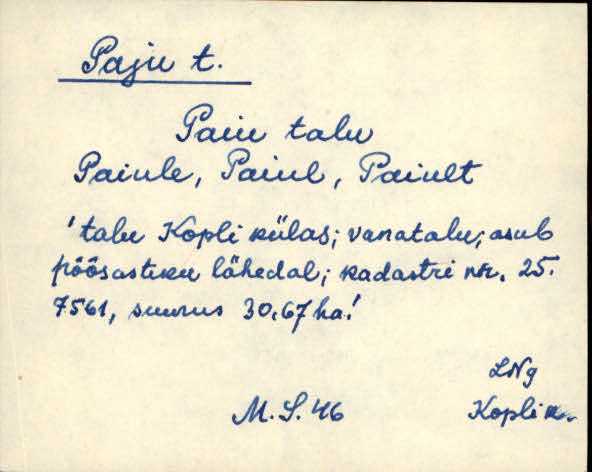 Paju t.
Paiu talu
Paiule, Paiul, Paiult
'talu Kopli külas; vanatalu; asub
põõsastiku lähedal; kadastri nr. 25.
7561, suurus 30,67 ha!
LNg
M. S. 46 Kopli k.